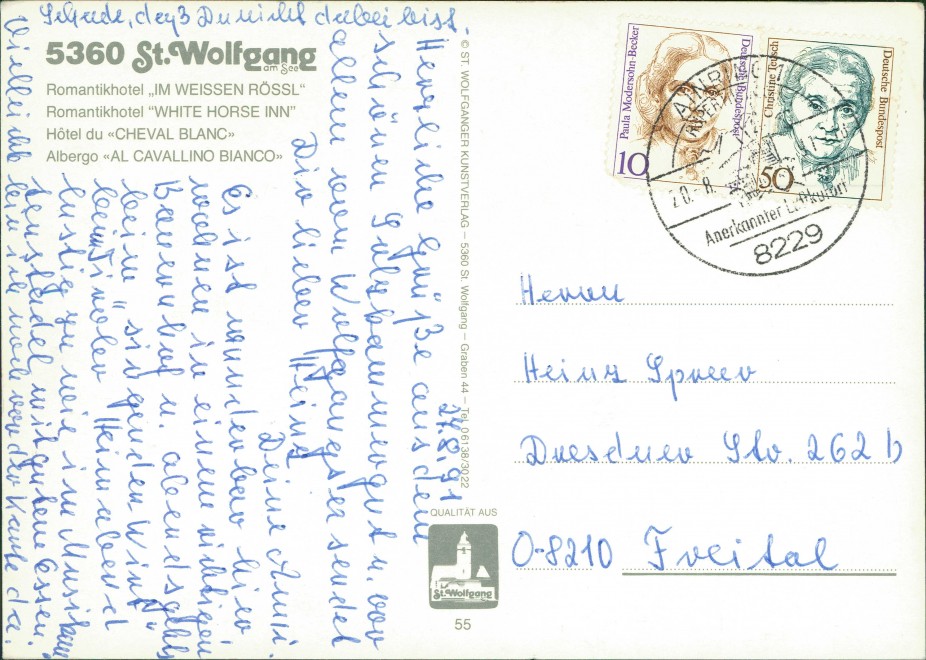 Schade, daß Du nicht dabei bist.
5360 St. Wolfgang
am See
Romantikhotel „IM WEISSEN RÖSSL“
Romantikhotel “WHITE HORSE INN”
Hôtel du «CHEVAL BLANC»
Albergo «AL CAVALLINO BIANCO»
27.8.91
Herzliche Grüße aus dem
schönen Salzkammergut u. vor
allem vom Wolfgangsee sendet
Dir lieber Heinz
Deine Anni
Es ist wunderbar hier,
wohnen in einem richtigen
Bauernhof u. abends gehts
beim "singenden Wirt"
beim Tiroler Heimabend
lustig zu wie im Musikan
tenstadel, mit gutem Essen.
Vielleicht bin ich noch vor der Karte da.
© ST. WOLFGANGER KUNSTVERLAG – 5360 St. Wolfgang – Graben 44 – Tel. 06138/3022
QUALITÄT AUS
St. Wolfgang
55
Paula Modersohn-Becker
Deutsche Bundespost
10
Christine Teusch
Deutsche Bundespost
50
AINRING
Anerkannter Luftkurort
8229
Herrn
Heinz
Dresdner Str. 262 b
O-8210 Freital